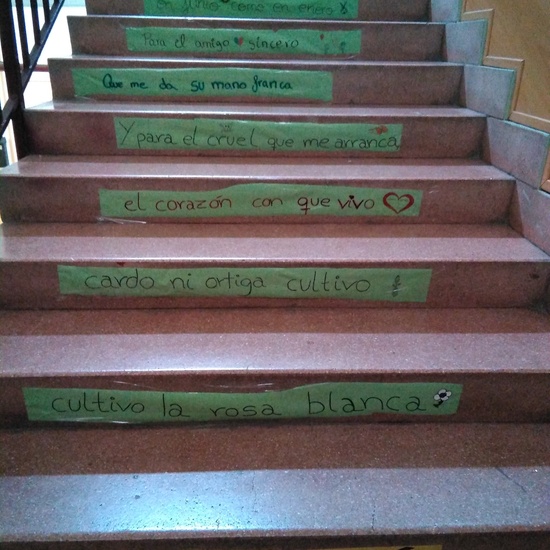 en junio como en enero
Para el amigo sincero
Que me da su mano franca
Y para el cruel que me arranca
el corazón con que vivo
cardo ni ortiga cultivo
cultivo la rosa blanca